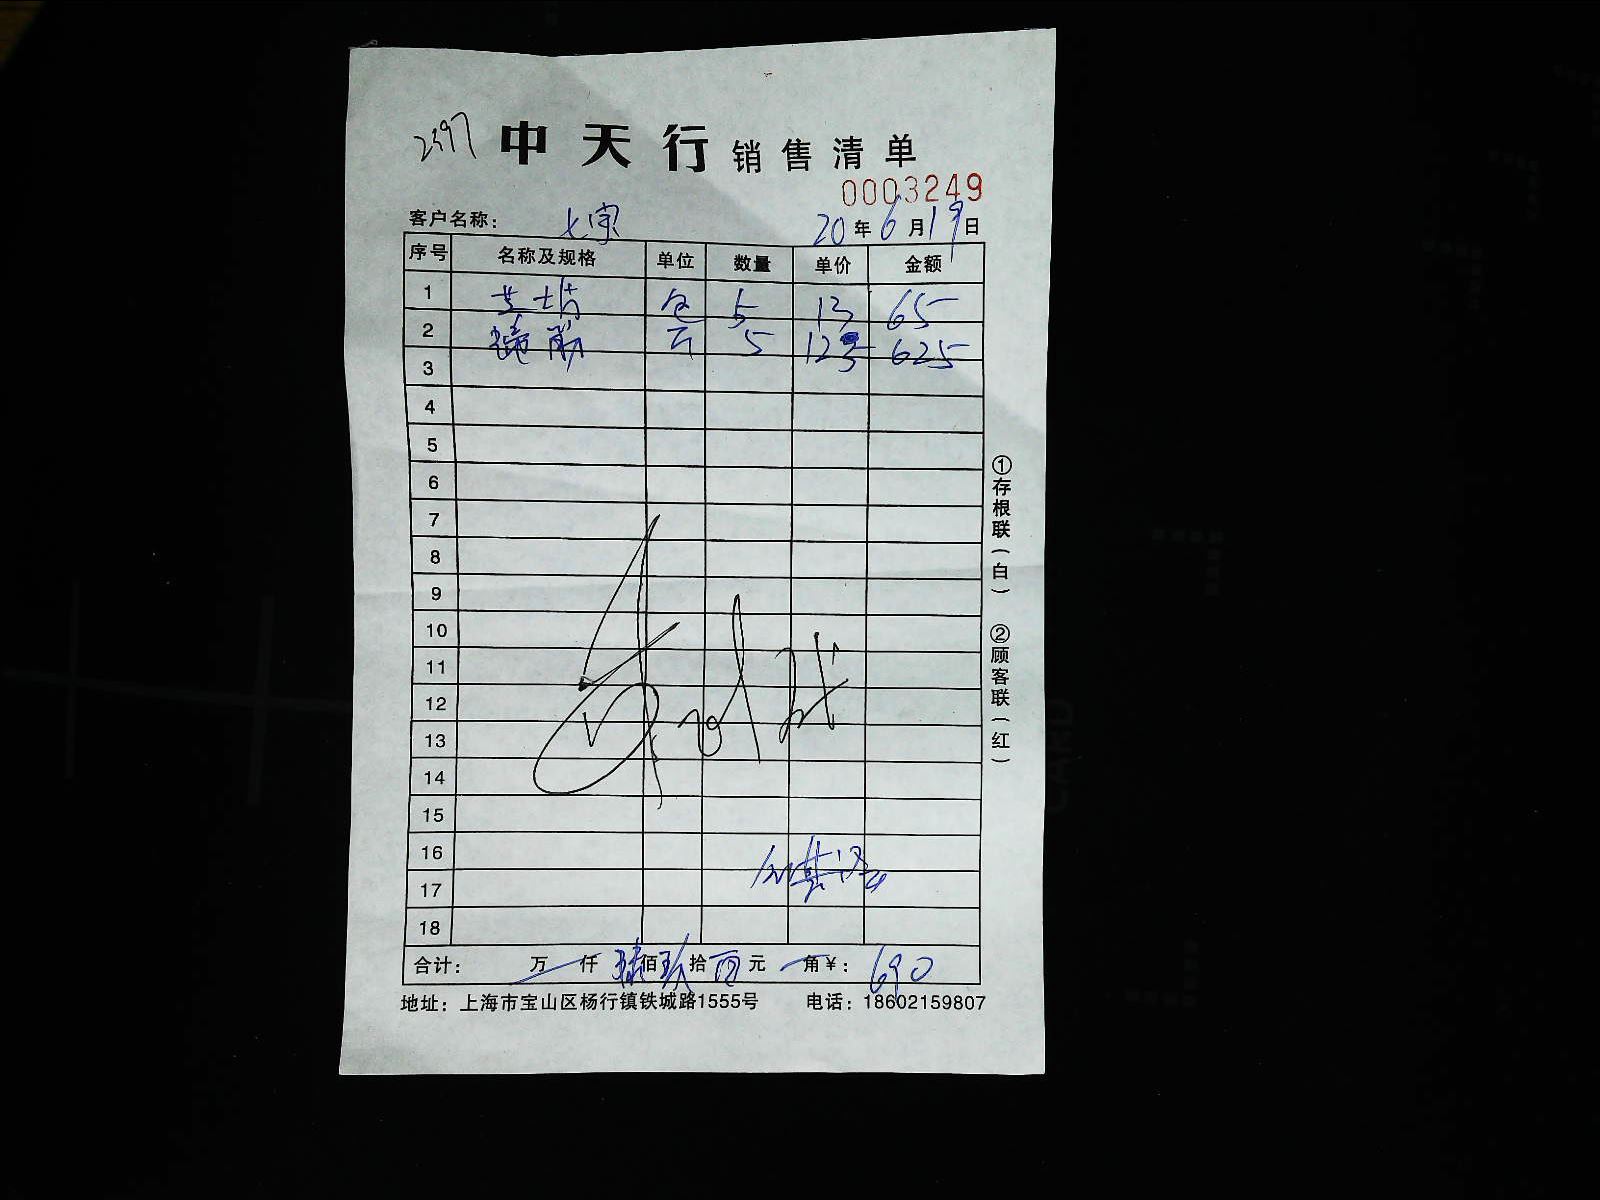 2397 中天行 销售清单
0003249
客户名称： 七宝 20年6月19日
序号 名称及规格 单位 数量 单价 金额
1 包 5 13 65
2 蹄筋 5 125 625
3
4
5
6
7
8
9
10
11
12
13
14
15
16
17
18
合计： 万 仟 陆佰玖拾 元 角￥：690
地址：上海市宝山区杨行镇铁城路1555号 电话：18602159807
①存根联（白） ②顾客联（红）